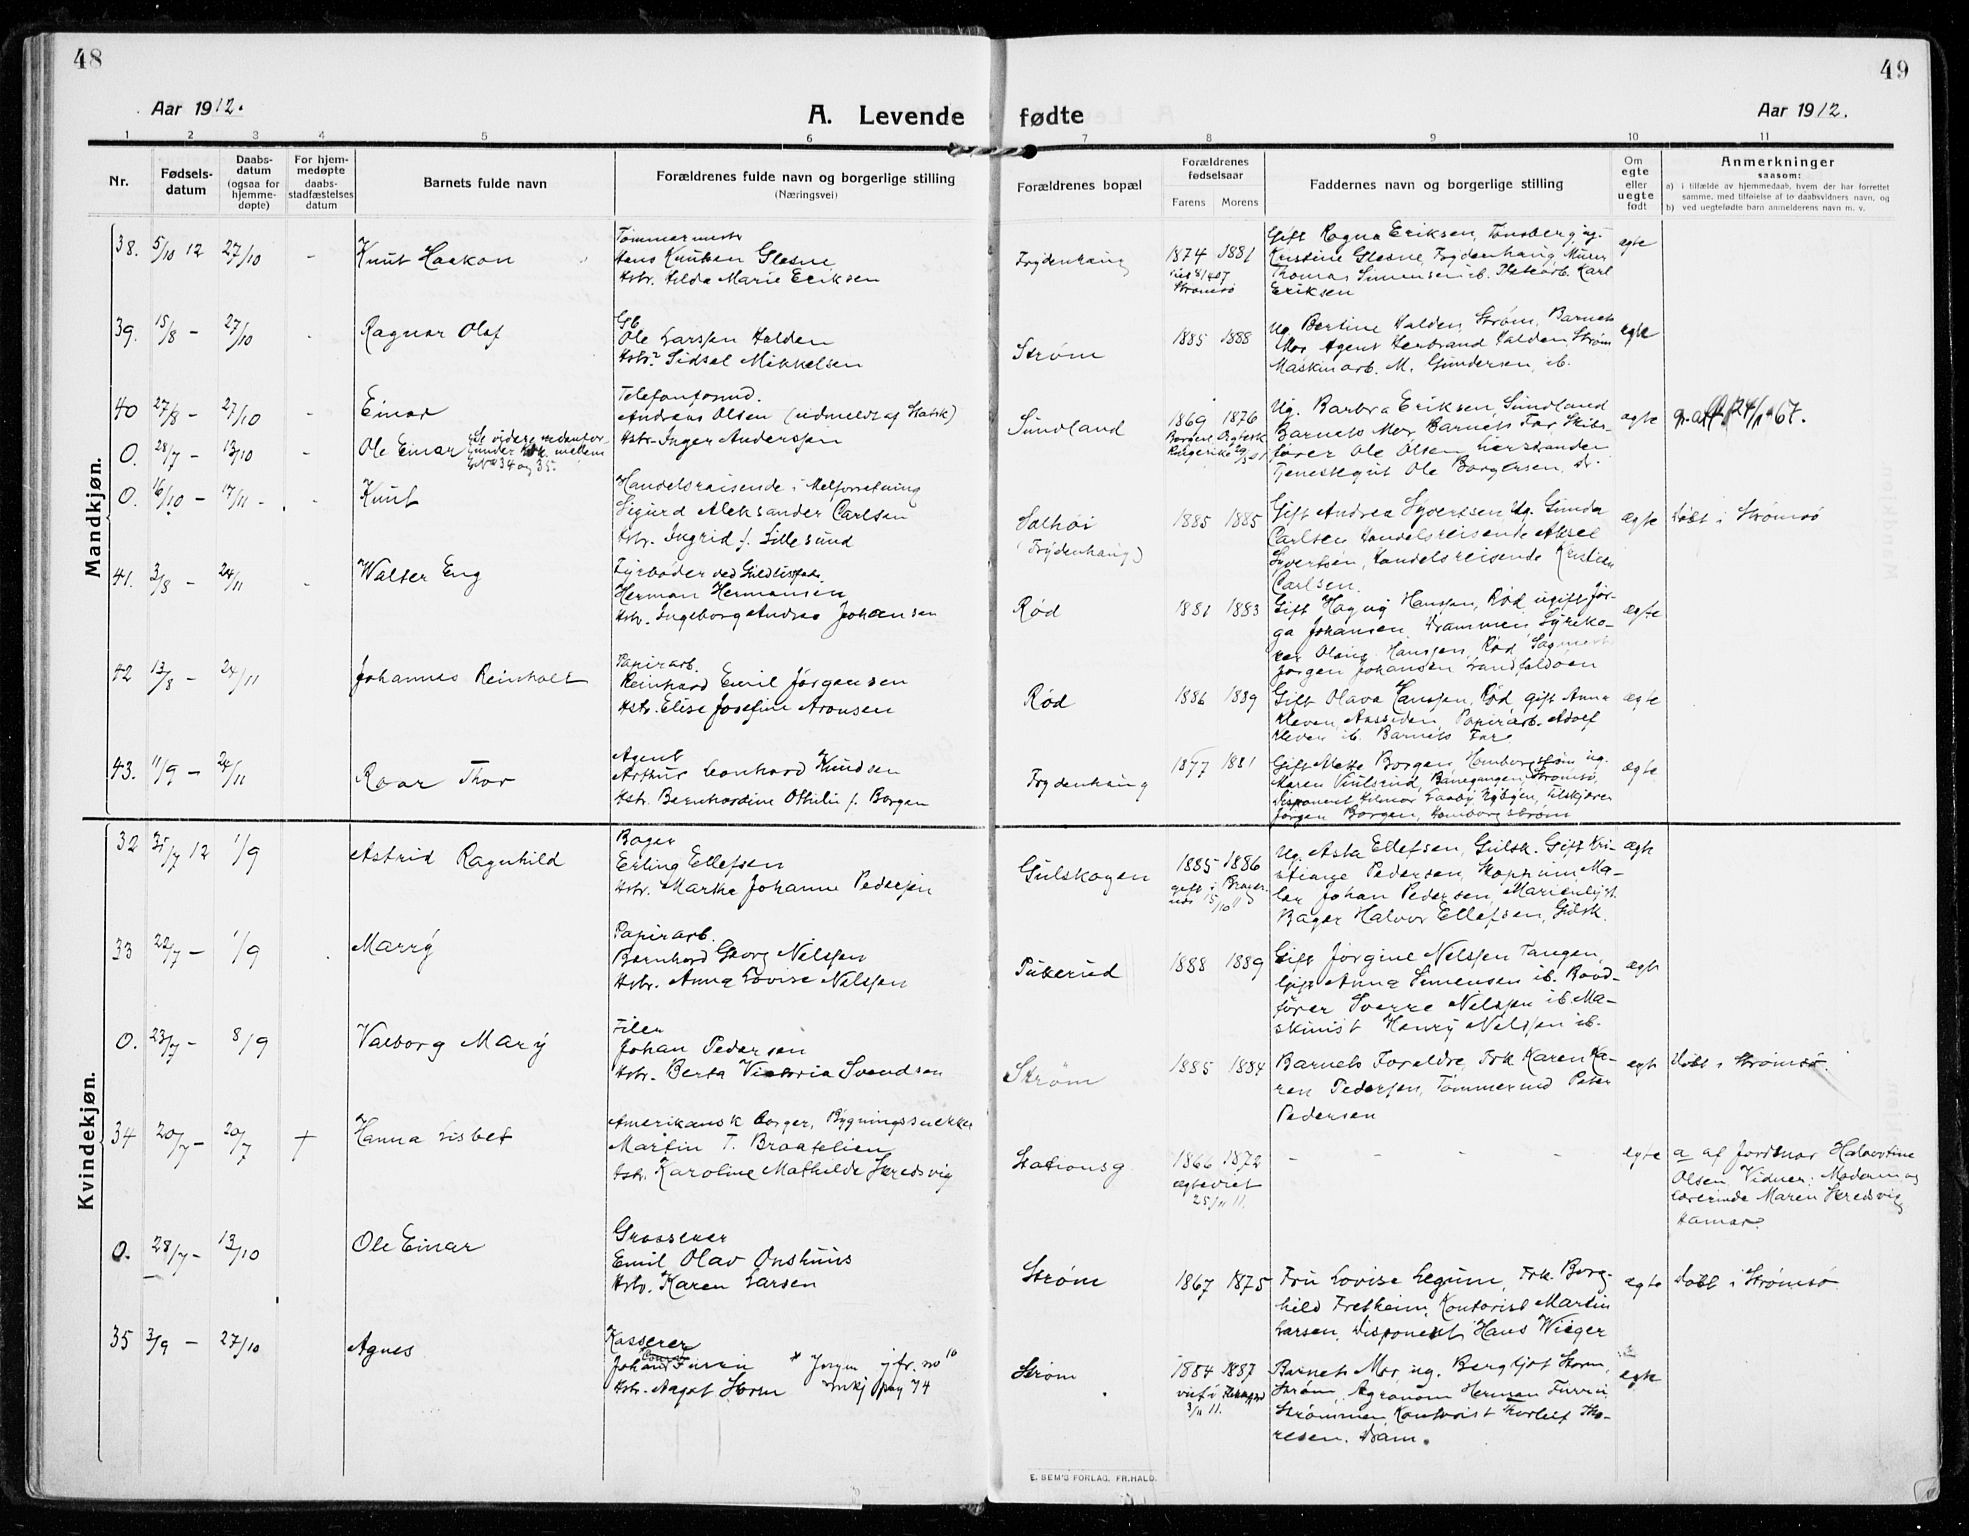 48
49
Aar 1912.
A. Levende fødte
Aar 1912.
1 2 3 4 5 6 7 8 9 10 11
Nr.
Fødsels-
datum
Daabs-
datum
(ogsaa for
hjemme-
døpte)
For hjem-
medøpte
daabs-
stadfæstelses
datum
Barnets fulde navn
Forældrenes fulde navn og borgerlige stilling
(Næringsvei)
Forældrenes bopæl
Forældrenes
fødselsaar
Farens Morens
Faddernes navn og borgerlige stilling
Om
egte
eller
uegte
født
Anmerkninger
saasom:
a) i tilfælde av hjemmedaab, hvem der har forrettet
samme, med tilføielse af to daabsvidners navn, og
b) ved uegtefødte barn anmelderens navn m. v.
Mandkjøn.
38. 5/10 12 27/10 - Knut Haakon
Tømmermester
Hans Knutsen Glesne
Hstr. Hilda Marie Eriksen
Frydenhaug
1874 1881
Strømsø
Gift Ragna Eriksen, Tønsberg, ug.
Kristine Glesne, Frydenhaug, Murer
Thomas Simensen ib. Karl
Eriksen
egte
39. 15/8 - 27/10 - Ragnar Olaf
Gb.
Ole Larssen Halden
Hstr. Sidsel Mikkelsen
Strøm
1885 1888
Ug. Bertine Halden, Strøm, Barnets
Mor, Agent Herbrand Halden, Strøm
Maskinarb. M. Gundersen, ib.
egte
40 27/8 - 27/10 - Einar
Telefonformd.
Andreas Olsen (udmeldt af Statsk)
Hstr. Inger Anderssen
Sundland
1869 1876
Ug. Barbra Eriksen, Sundland
Barnets Mor Barnets Far Skibs-
fører Ole Olsen Lierstranden
Tjenestegut Ole Borgersen, Dr.
egte
O. 28/7 - 13/10 - Ole Einar Se videre nedenfor
under Kvk. mellem
34 og 35.
O. 16/10 - 17/11 - Knut
Handelsreisende i Melforretning
Sigurd Aleksander Carlsen
Hstr. Ingrid f. Lillesund
Solhøi
(Frydenhaug)
1885 1885
Gift Andrea Syvertsen Ug. Gunda
Carlsen Handelsreisende Aksel
Syvertsen, Handelsreisende Kristian
Carlsen.
ægte
Døbt i Strømsø
41. 3/8 - 24/11 - Walter Eng
Fyrbøder
Herman Hermansen
Hstr. Ingeborg Andrea Johansen
Rød
1881 1883
Gift Hagny Hanssen, Rød, ugift Jør-
ga Johansen, Drammen
Hanssen, Rød
Jørgen Johansen Landfaldøen
ægte
42 13/8 - 24/11 Johannes Reinholt
Papirarb.
Reinhard Emil Jørgensen
Hstr. Elise Josefine Aronsen
Rød
1886 1889
Gift Olava Hanssen, Rød, gift Anna
Kleven, Aassiden, Papirarb. Adolf
Kleven ib. Barnets Far
ægte
43. 11/9 - 24/11 Roar Thor
Agent
Arthur Leonhard Knudsen
Hstr. Bernhardine Othilie f. Borgen
Frydenhaug
1877 1881
Gift Mette Borgen, Homborgstrøm, ug.
Maren, Banegangen, Strømsø,
Disponent Hilmar Laaby Nybyen,
Jørgen Borgen, Homborgstrøm
ægte
Kvindekjøn.
32 31/7 12 1/9 Astrid Ragnhild
Bager
Erling Ellefsen
Hstr. Martha Johanne Pedersen
Gulskogen
1885 1886
gift i Brager-
næs 15/10 11
Ug. Asta Ellefsen, Gulsk. Gift Kri-
stiane Pedersen, Skoppum, Ma-
ler Johan Pedersen, Marienlyst
Bager Halvor Ellefsen, Gulsk.
ægte
33 22/7 - 1/9 Marry
Papirarb.
Bernhard Georg Nilssen
Hstr. Anna Lovise Nelssen
Pukerud
1888 1889
Gift Jørgine Nelssen Tangen,
Gift Anna Simensen ib. Baad-
fører Sverre Nelssen ib. Ma-
skinist Henry Nelssen ib.
ægte
O. 23/7 - 8/9 Valborg Mary
Filer
Johan Pedersen
Hstr. Berta Victoria Svendsen
Strøm
1885 1884
Barnets Foreldre, Frk Karen Ka-
ren Pedersen, Tømmermd Peter
Pedersen
egte
Døbt i Strømsø.
34 20/7 - 20/7 + Hanna Lisbet
Amerikansk borger, Bygningssnekker
Martin T. Braatelien
Hstr. Karoline Mathilde Skredsvig
Stationsg
1866 1872
ægteviet
25/11 11.
- - - -
egte
a af Jordmor Halvortine
Olsen, Vidner: Madam og
lærerinde Maren Skredsvig
Hamar.
O. 28/7 - 13/10 Ole Einar
Grosserer
Emil Olav Onshuus
Hstr. Karen Larsen
Strøm
1867 1875
Fru Lovise Legum, Frk. Borg-
hild Fretheim, Kontorist Martin
Larsen, Disponent Hans Wieger
ægte
Døbt i Strømsø
35 3/9 - 27/10 Agnes
Kasserer
Johan Furru * Jørgen jfr. no 10
Hstr. Aagot Storm mkj pag 74
Strøm
1884 1887
viet i
3/11 11.
Barnets Mor, ug. Bergljot Storm,
Strøm, Agronom Herman Furru,
Strømmen, Kontorist Thorleif Tho-
resen. Dram.
egte
E. SEM'S FORLAG, FR.HALD.